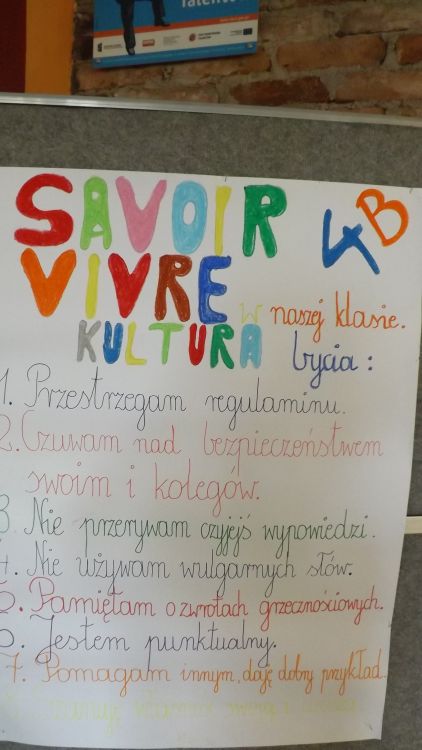 SAVOIR 4B
VIVRE w naszej klasie.
KULTURA bycia:
1. Przestrzegam regulaminu.
2. Czuwam nad bezpieczeństwem
swoim i kolegów.
3. Nie przerywam czyjejś wypowiedzi.
4. Nie używam wulgarnych słów.
5. Pamiętam o zwrotach grzecznościowych.
6. Jestem punktualny.
7. Pomagam innym, daję dobry przykład.
8. Szanuję własność swoją i